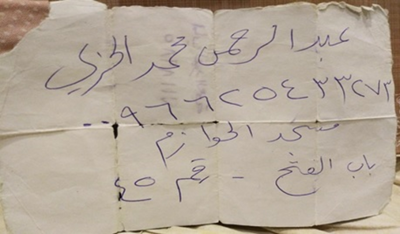 عبد الرحمن محمد الحربي
٠٠٩٦٦٢٥٤٣٣٢٧٣
مسجد الحوازم
باب الفتح - رقم ٤٥